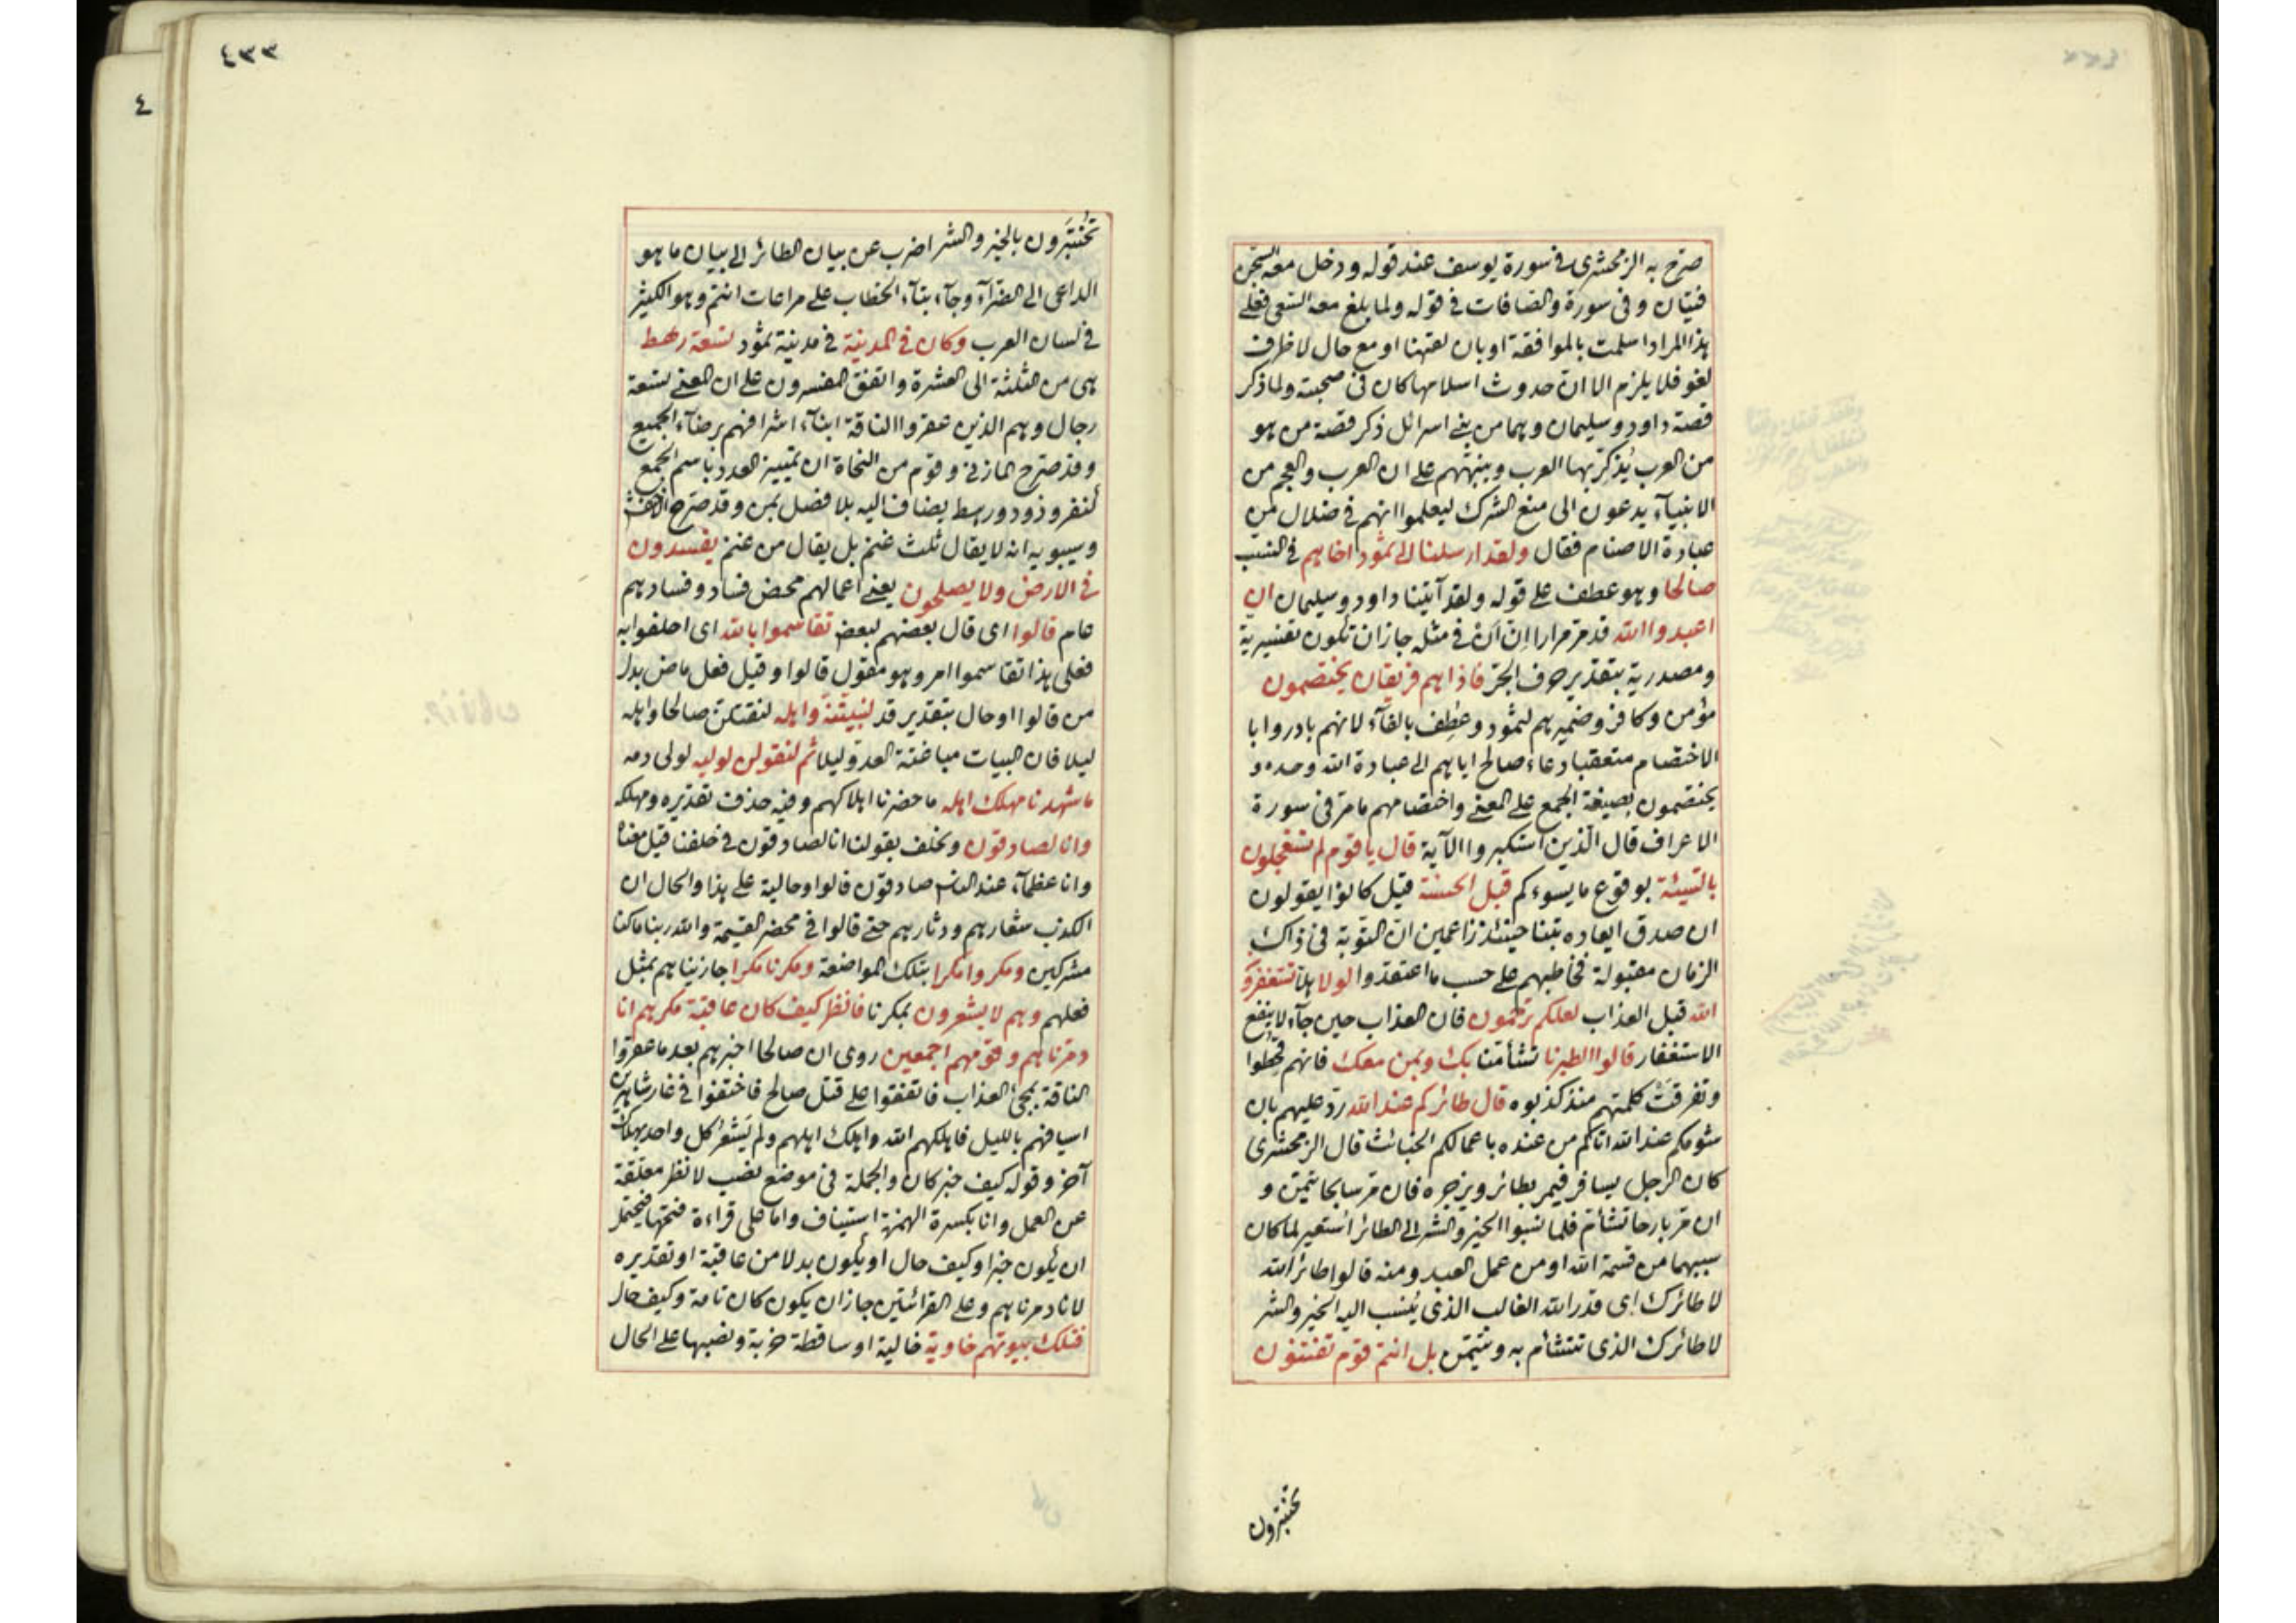 صرّح به الزمحشرى فى سورة يوسف عند قوله ودخل معه السّجن
فتيان وفى سورة والصافات فى قوله ولما بلغ معه السّعى فعلى
هذا المراد اسلمت بالموافقة او بان لغتهنا او مع حال لا ظرف
لغو فلا يلزم الا ان حدوث اسلامها كان فى صحبته ولما ذكر
قصة داود وسليمان وهما من بنى اسرائل ذكر قصة من هو
من العرب يُذكّر بها العرب وينبّههم على ان العرب والعجم من
الانبيآء يدعون الى منع الشرك ليعلموا انهم فى ضلال من
عبادة الاصنام فقال ولقد ارسلنا الى ثمود اخاهم فى النسب
صالحا وهو عطف على قوله ولقد آتينا داود وسليمان ان
اعبدوا الله قد مرّ مرارا انّ ان فى مثله جاز ان تكون تفسيرية
ومصدرية بتقدير حرف الجرّ فاذا هم فريقان يختصمون
مؤمن وكافر وضمير هم لثمود وعُطِف بالفآء لانهم بادروا با
الاختصام متعقبا دعاء صالح اياهم الى عبادة الله وحده و
يختصمون بصيغة الجمع على المعنى واختصامهم ما مرّ فى سورة
الاعراف قال الّذين استكبروا الآية قال يا قوم لم تستعجلون
بالسّيئة بوقوع ما يسوءكم قبل الحسنة قيل كانوا يقولون
ان صدق ايعاده تبنا حينئذ زاعمين انّ التوبة فى ذاك
الزمان مقبولة فخاطبهم على حسب ما اعتقدوا لولا هلّا تستغفرون
الله قبل العذاب لعلكم ترحمون فان العذاب حين جآء لا ينفع
الاستغفار قالوا اطيرنا تشأمنا بك وبمن معك فانهم قحطوا
وتفرقت كلمتهم منذ كذبوه قال طائركم عند الله ردّ عليهم بان
شومكم عند الله اتاكم من عنده باعمالكم الخبائث قال الزمحشرى
كان الرجل يسافر فيمر بطائر ويزجره فان مرّ سابحا تيمّن و
ان مرّ بارحا تشأم فلما نسبوا الخير والشر الى الطائر استعير لما كان
سببهما من قسمة الله او من عمل العبد ومنه قالوا طائر الله
لا طائرك اى قدر الله الغالب الذى يُنسب اليه الخير والشر
لا طائرك الذى تتشأم به وتتيمّن بل انتم قوم تفتنون
تختبرون
٤٣٣
٤
تُختبَرون بالخير والشر اضرب عن بيان الطائر الى بيان ما هو
الداعى الى الضرآء وجآء بتآء الخطاب على مراعات انتم وهو الكثير
فى لسان العرب وكان فى المدينة فى مدينة ثمود تسعة رهط
هى من الثلثة الى العشرة واتفق المفسرون على ان المعنى تسعة
رجال وهم الذين عقروا الناقة ابنآء اشرافهم برضآء الجميع
وقد صرّح المازنى وقوم من النحاة ان تمييز العدد باسم الجمع
كنفر وذود ورهط يضاف اليه بلا فصل بمن وقد صرّح الاخفش
وسيبويه انه لا يقال ثلث غنم بل يقال من غنم يفسدون
فى الارض ولا يصلحون يعنى اعمالهم محض فساد وفسادهم
عام قالوا اى قال بعضهم لبعض تقاسموا بالله اى احلفوا به
فعلى هذا تقاسموا امر وهو مقول قالوا وقيل فعل ماض بدل
من قالوا او حال بتقدير قد لنبيّتنّه واهله لنقتلنّ صالحا واهله
ليلا فان البيات مباغتة العدوّ ليلا ثم لنقولن لوليه لولى دمه
ما شهدنا مهلك اهله ما حضرنا اهلاكهم وفيه حذف تقديره ومهلكه
وانا لصادقون ونحلف بقولنا انا لصادقون فى حلفنا قيل معناه
وانا عظمآء عند الناس صادقون قالوا وحالية على هذا والحال ان
الكذب شعارهم ودثارهم حتى قالوا فى محضر القيمة والله ربنا ما كنا
مشركين ومكروا مكرا بتلك المواضعة ومكرنا مكرا جازيناهم بمثل
فعلهم وهم لا يشعرون بمكرنا فانظر كيف كان عاقبة مكرهم انا
دمّرناهم وقومهم اجمعين روى ان صالحا اخبرهم بعد ما عقروا
الناقة بمجئ العذاب فاتفقوا على قتل صالح فاختفوا فى غار شاهرين
اسيافهم بالليل فاهلكهم الله واهلك اهلهم ولم يَشعُر كل واحد بهلاك
آخر وقوله كيف خبر كان والجملة فى موضع نصب لانظر معلّقة
عن العمل وانا بكسرة الهمزة استيناف واما على قراءة فتحها فيحتمل
ان يكون خبرا وكيف حال او يكون بدلا من عاقبة او تقديره
لانا دمرناهم وعلى القرائتين جاز ان يكون كان تامة وكيف حال
فتلك بيوتهم خاوية خالية او ساقطة خربة ونصبها على الحال